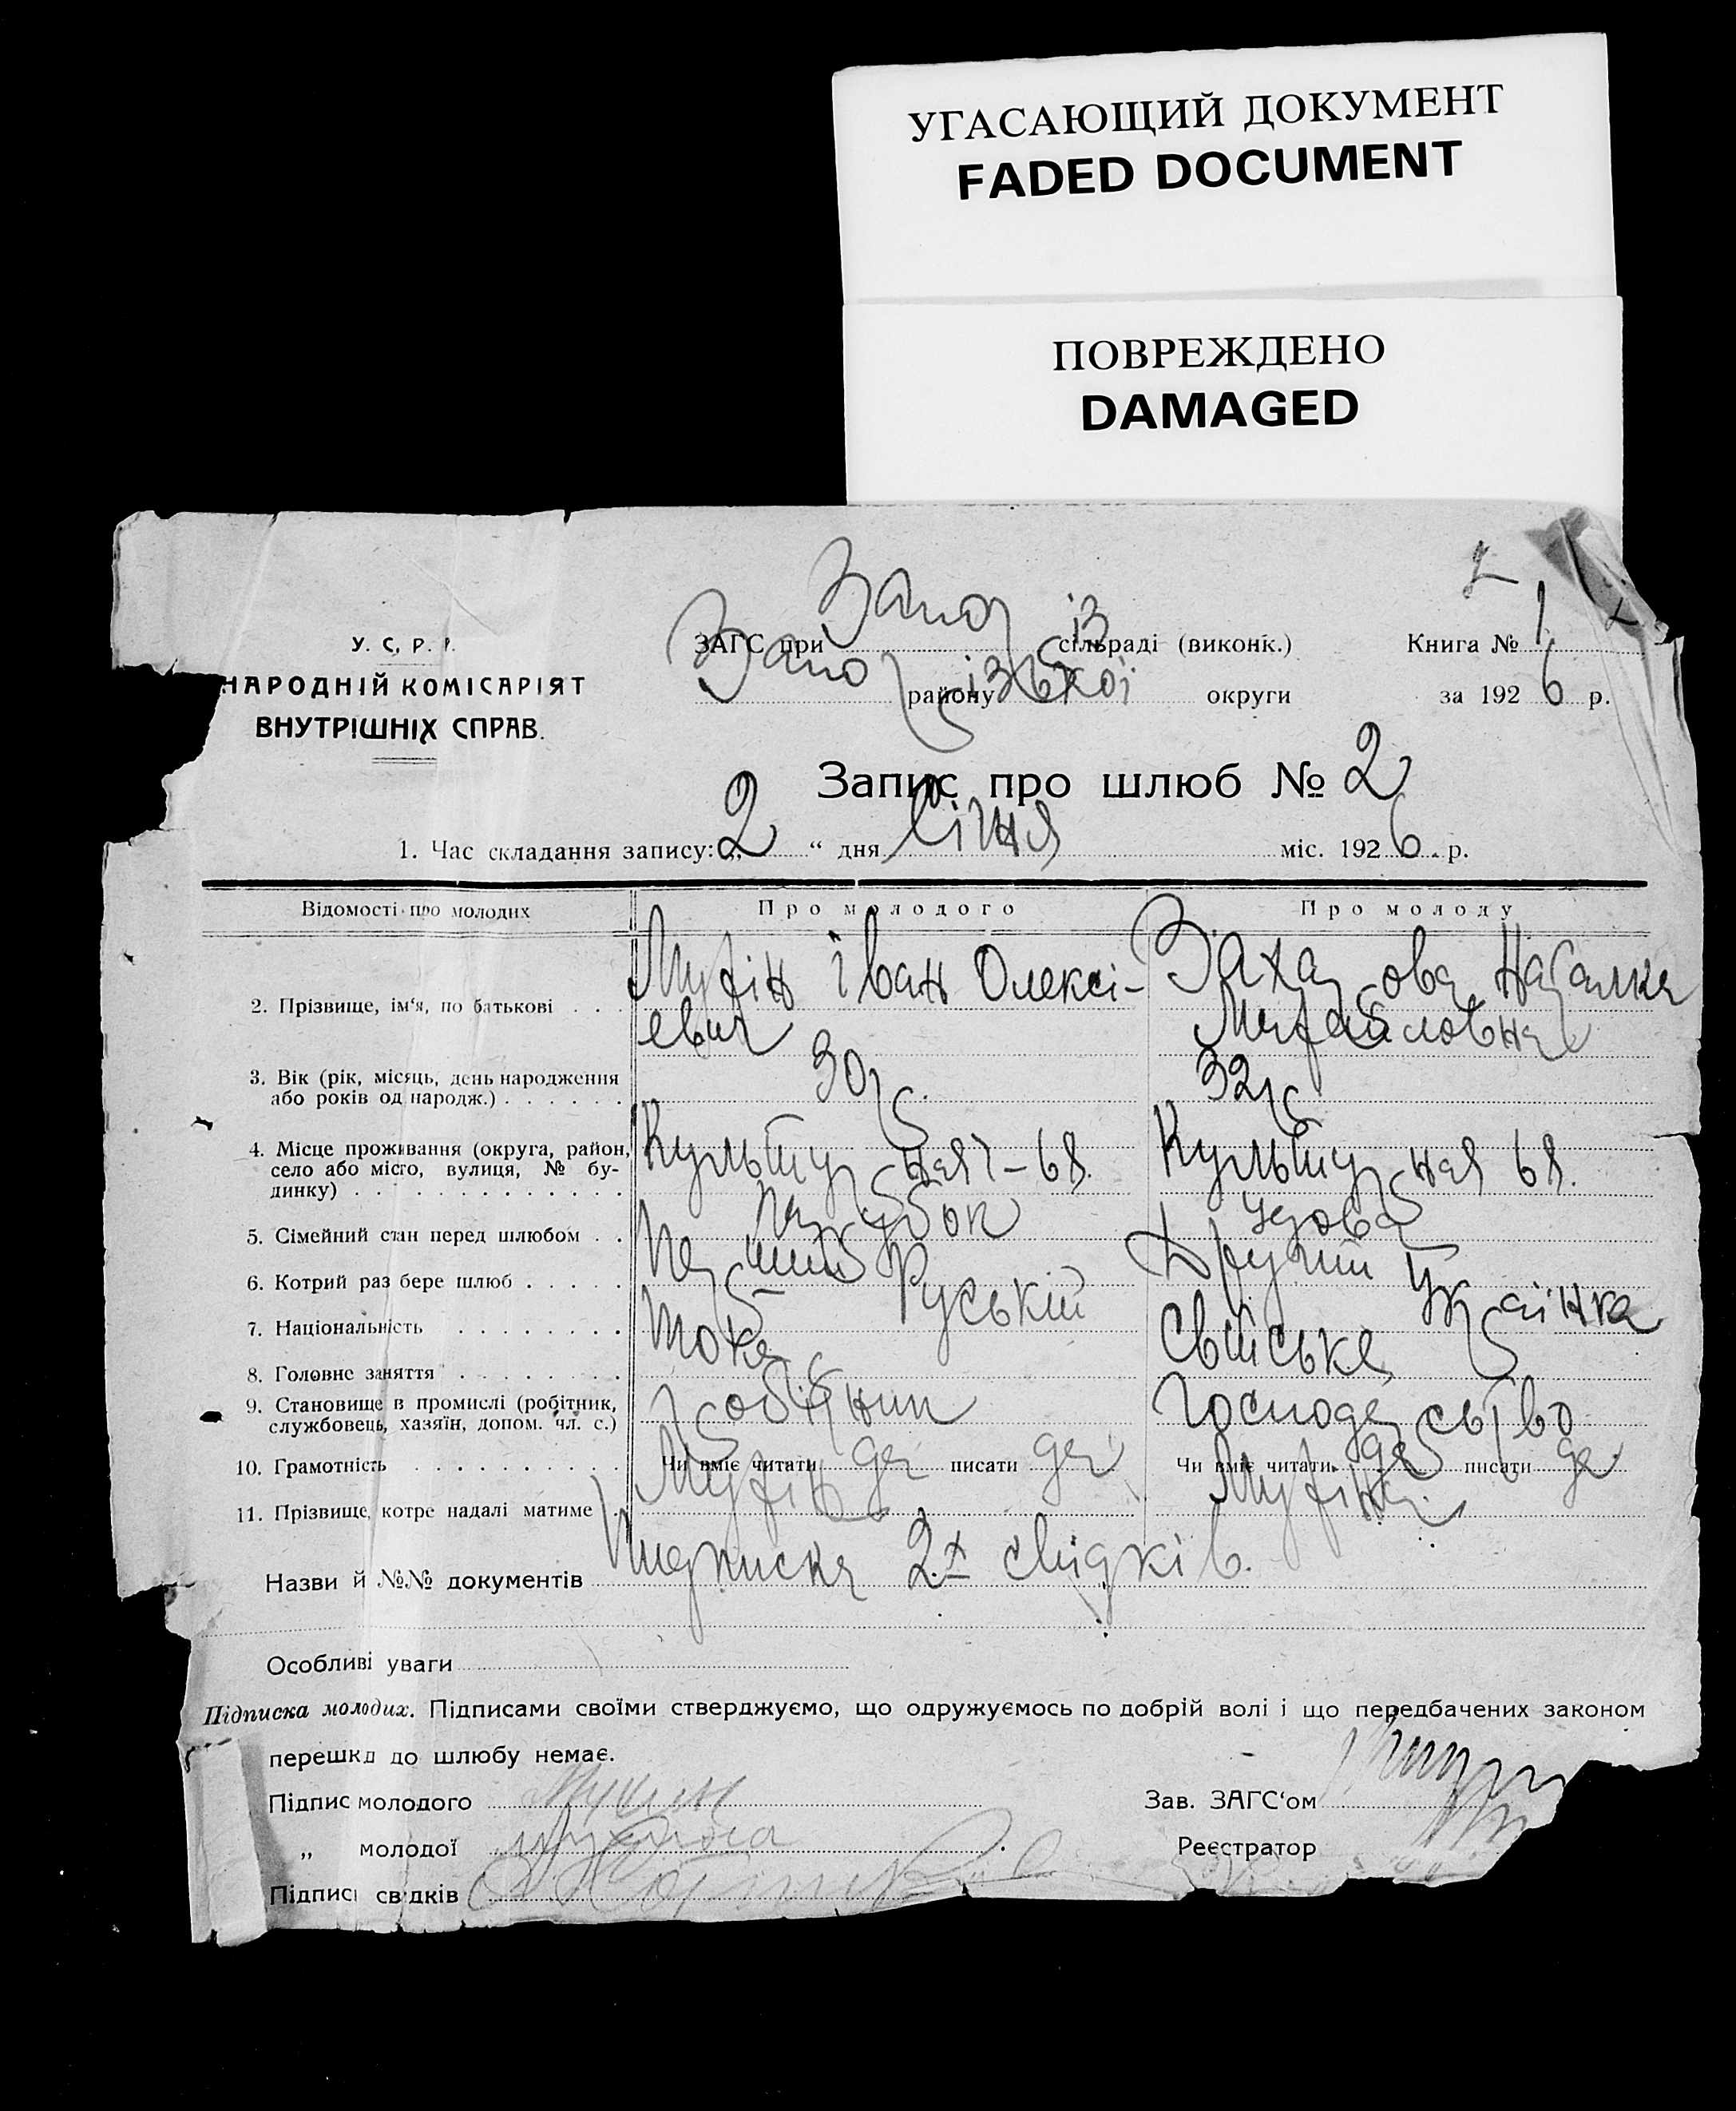 УГАСАЮЩИЙ ДОКУМЕНТ
FADED DOCUMENT
ПОВРЕЖДЕНО
DAMAGED
У. С. Р. Р.
НАРОДНІЙ КОМІСАРІЯТ
ВНУТРІШНІХ СПРАВ.
ЗАГС при Запоріз сільраді (виконк.) Книга № 1
Запорізької району округи за 1926 р.
Запис про шлюб № 2
1. Час складання запису: „2“ дня Січня міс. 1926 р.
Відомості про молодих Про молодого Про молоду
2. Прізвище, ім‘я, по батькові Мухін Іван Олексі- Захарова Наталка
евич Михайловна
3. Вік (рік, місяць, день народження 30 р. 32 р.
або років од народж.)
4. Місце проживання (округа, район, Культурная 68. Культурная 68.
село або місто, вулиця, № бу-
динку)
5. Сімейний стан перед шлюбом парубок удова
6. Котрий раз бере шлюб Перший Другий
7. Національність Руській Українка
8. Головне заняття токар Свійське
9. Становище в промислі (робітник, робітник господарство
службовець, хазяїн, допом. чл. с.)
10. Грамотність Чи вміє читати да писати да Чи вміє читати да писати да
11. Прізвище, котре надалі матиме Мухін Мухіна
Назви й №№ документів Підписка 2х свідків.
Особливі уваги
Підписка молодих. Підписами своїми стверджуємо, що одружуємось по добрій волі і що передбачених законом
перешкд до шлюбу немає.
Підпис молодого Мухин Зав. ЗАГС‘ом
„ молодої Мухина Реєстратор
Підписі свідків